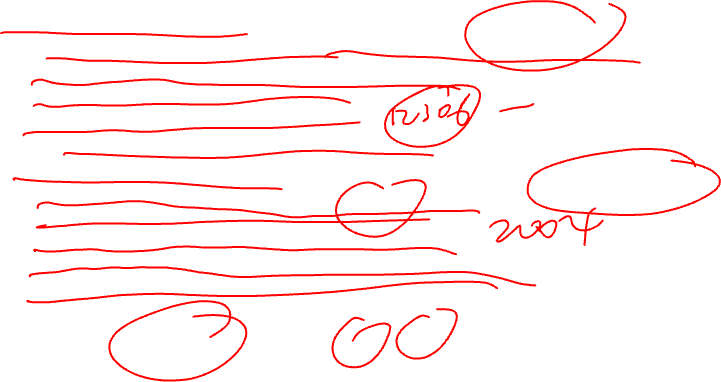 12306
2004